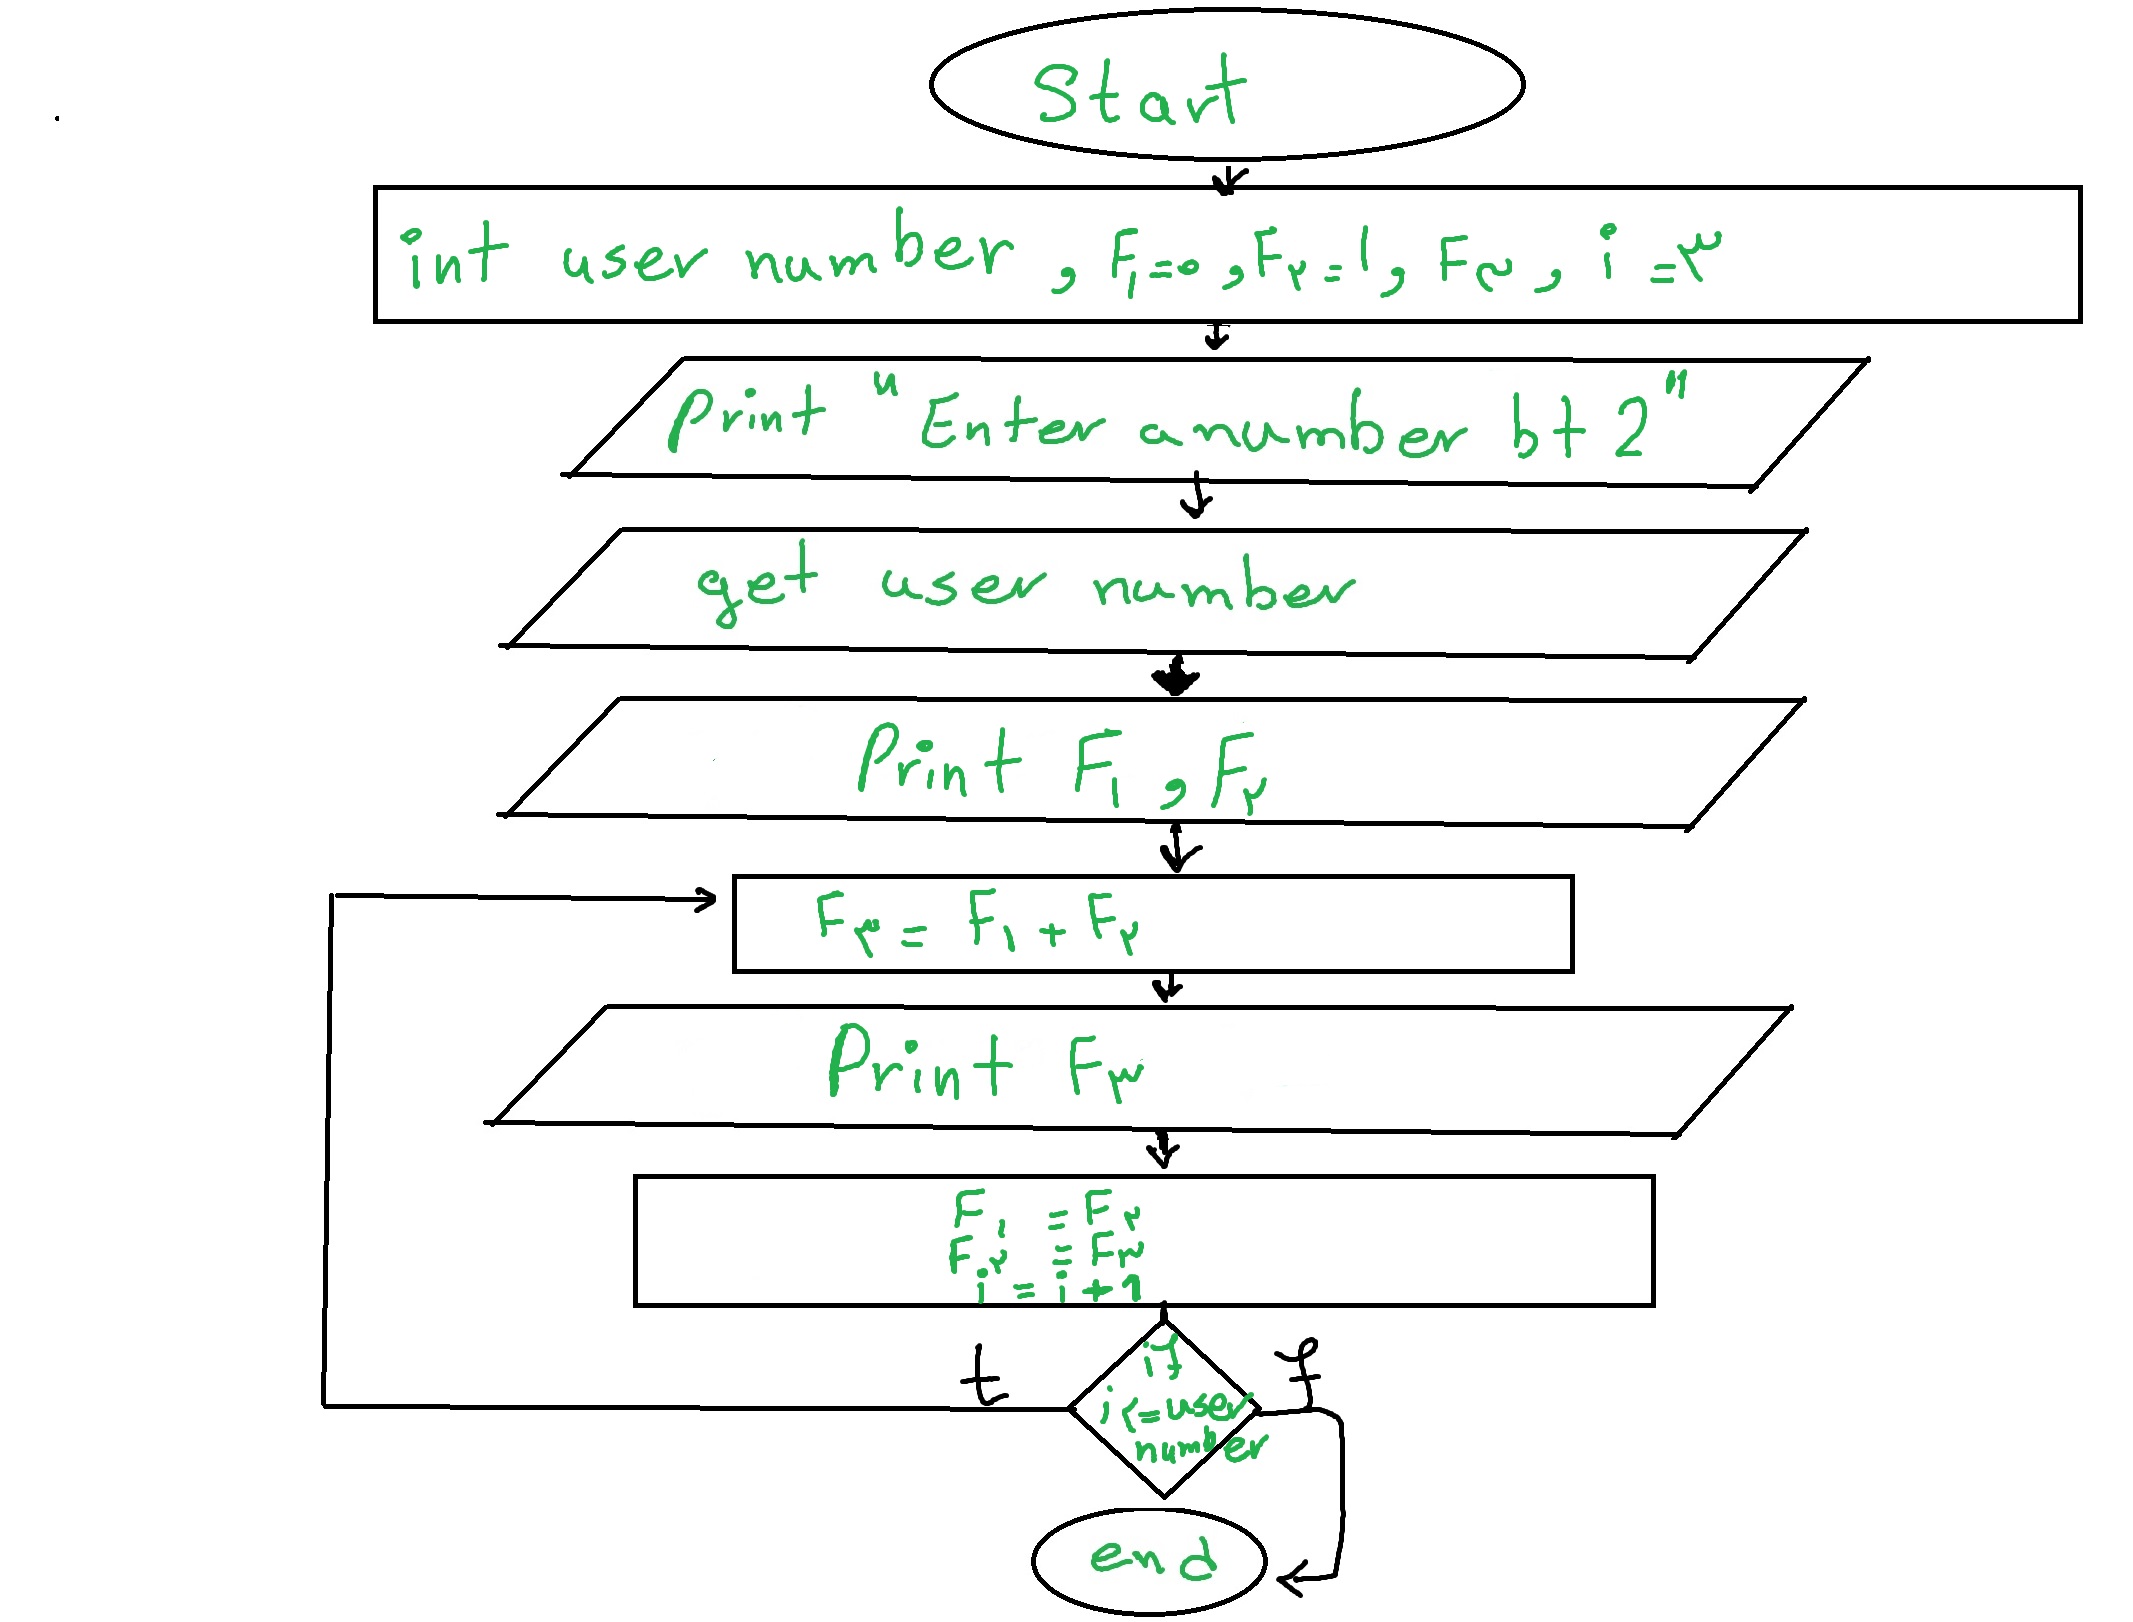 Start
int user number , F۱=۰ , F۲=۱ , F۳ , i =۳
Print "Enter a number bt 2"
get user number
Print F۱ , F۲
F۳ = F۱ + F۲
Print F۳
F۱ = F۲
F۲ = F۳
i = i + 1
t
if
f
i<=user
number
end